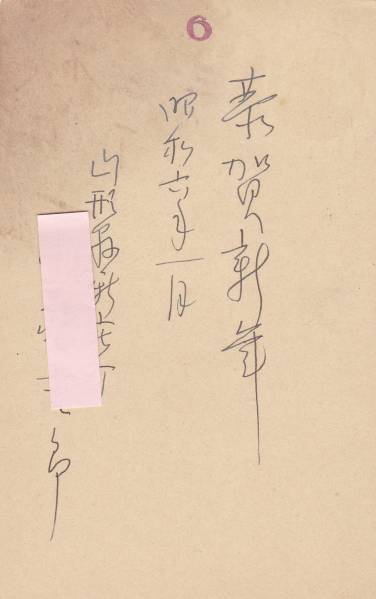 6
恭賀新年
昭和六年一月
山形県新庄町
郎